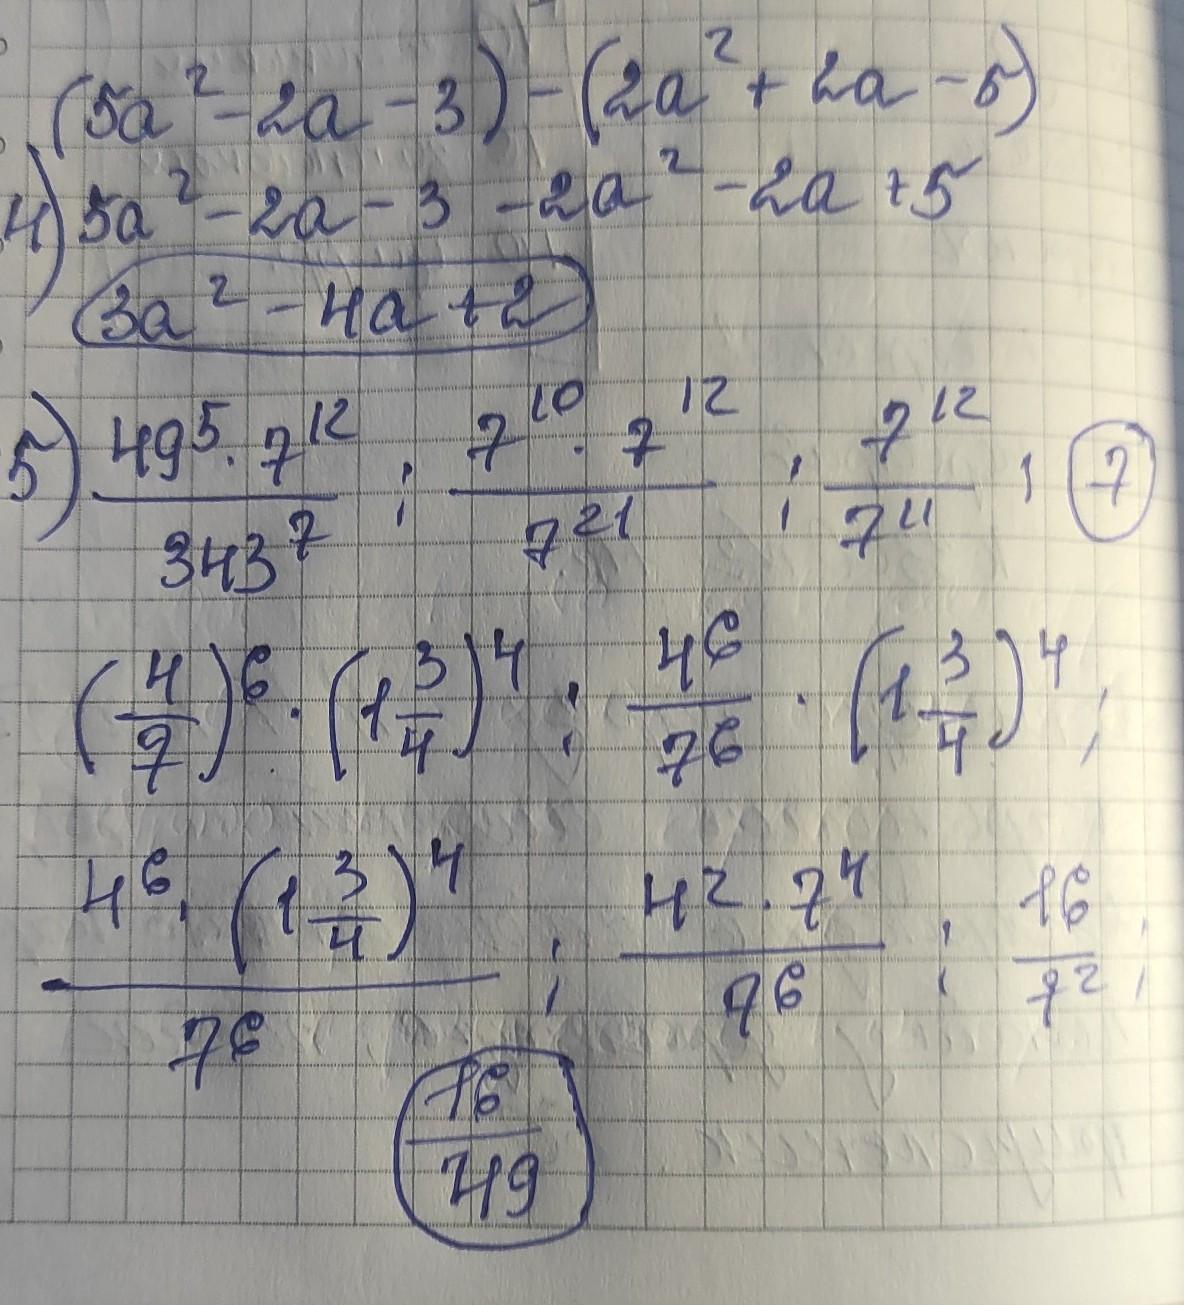 (5a² - 2a - 3) - (2a² + 2a - 5)
4) 5a² - 2a - 3 - 2a² - 2a + 5
3a² - 4a + 2
5) \frac{49⁵ · 7¹²}{343⁷} ; \frac{7¹⁰ · 7¹²}{7²¹} ; \frac{7¹²}{7¹¹} ; 7
(\frac{4}{7})⁶ · (1\frac{3}{4})⁴ ; \frac{4⁶}{7⁶} · (1\frac{3}{4})⁴ ;
\frac{4⁶ · (1\frac{3}{4})⁴}{7⁶} ; \frac{4² · 7⁴}{7⁶} ; \frac{16}{7²} ;
\frac{16}{49}